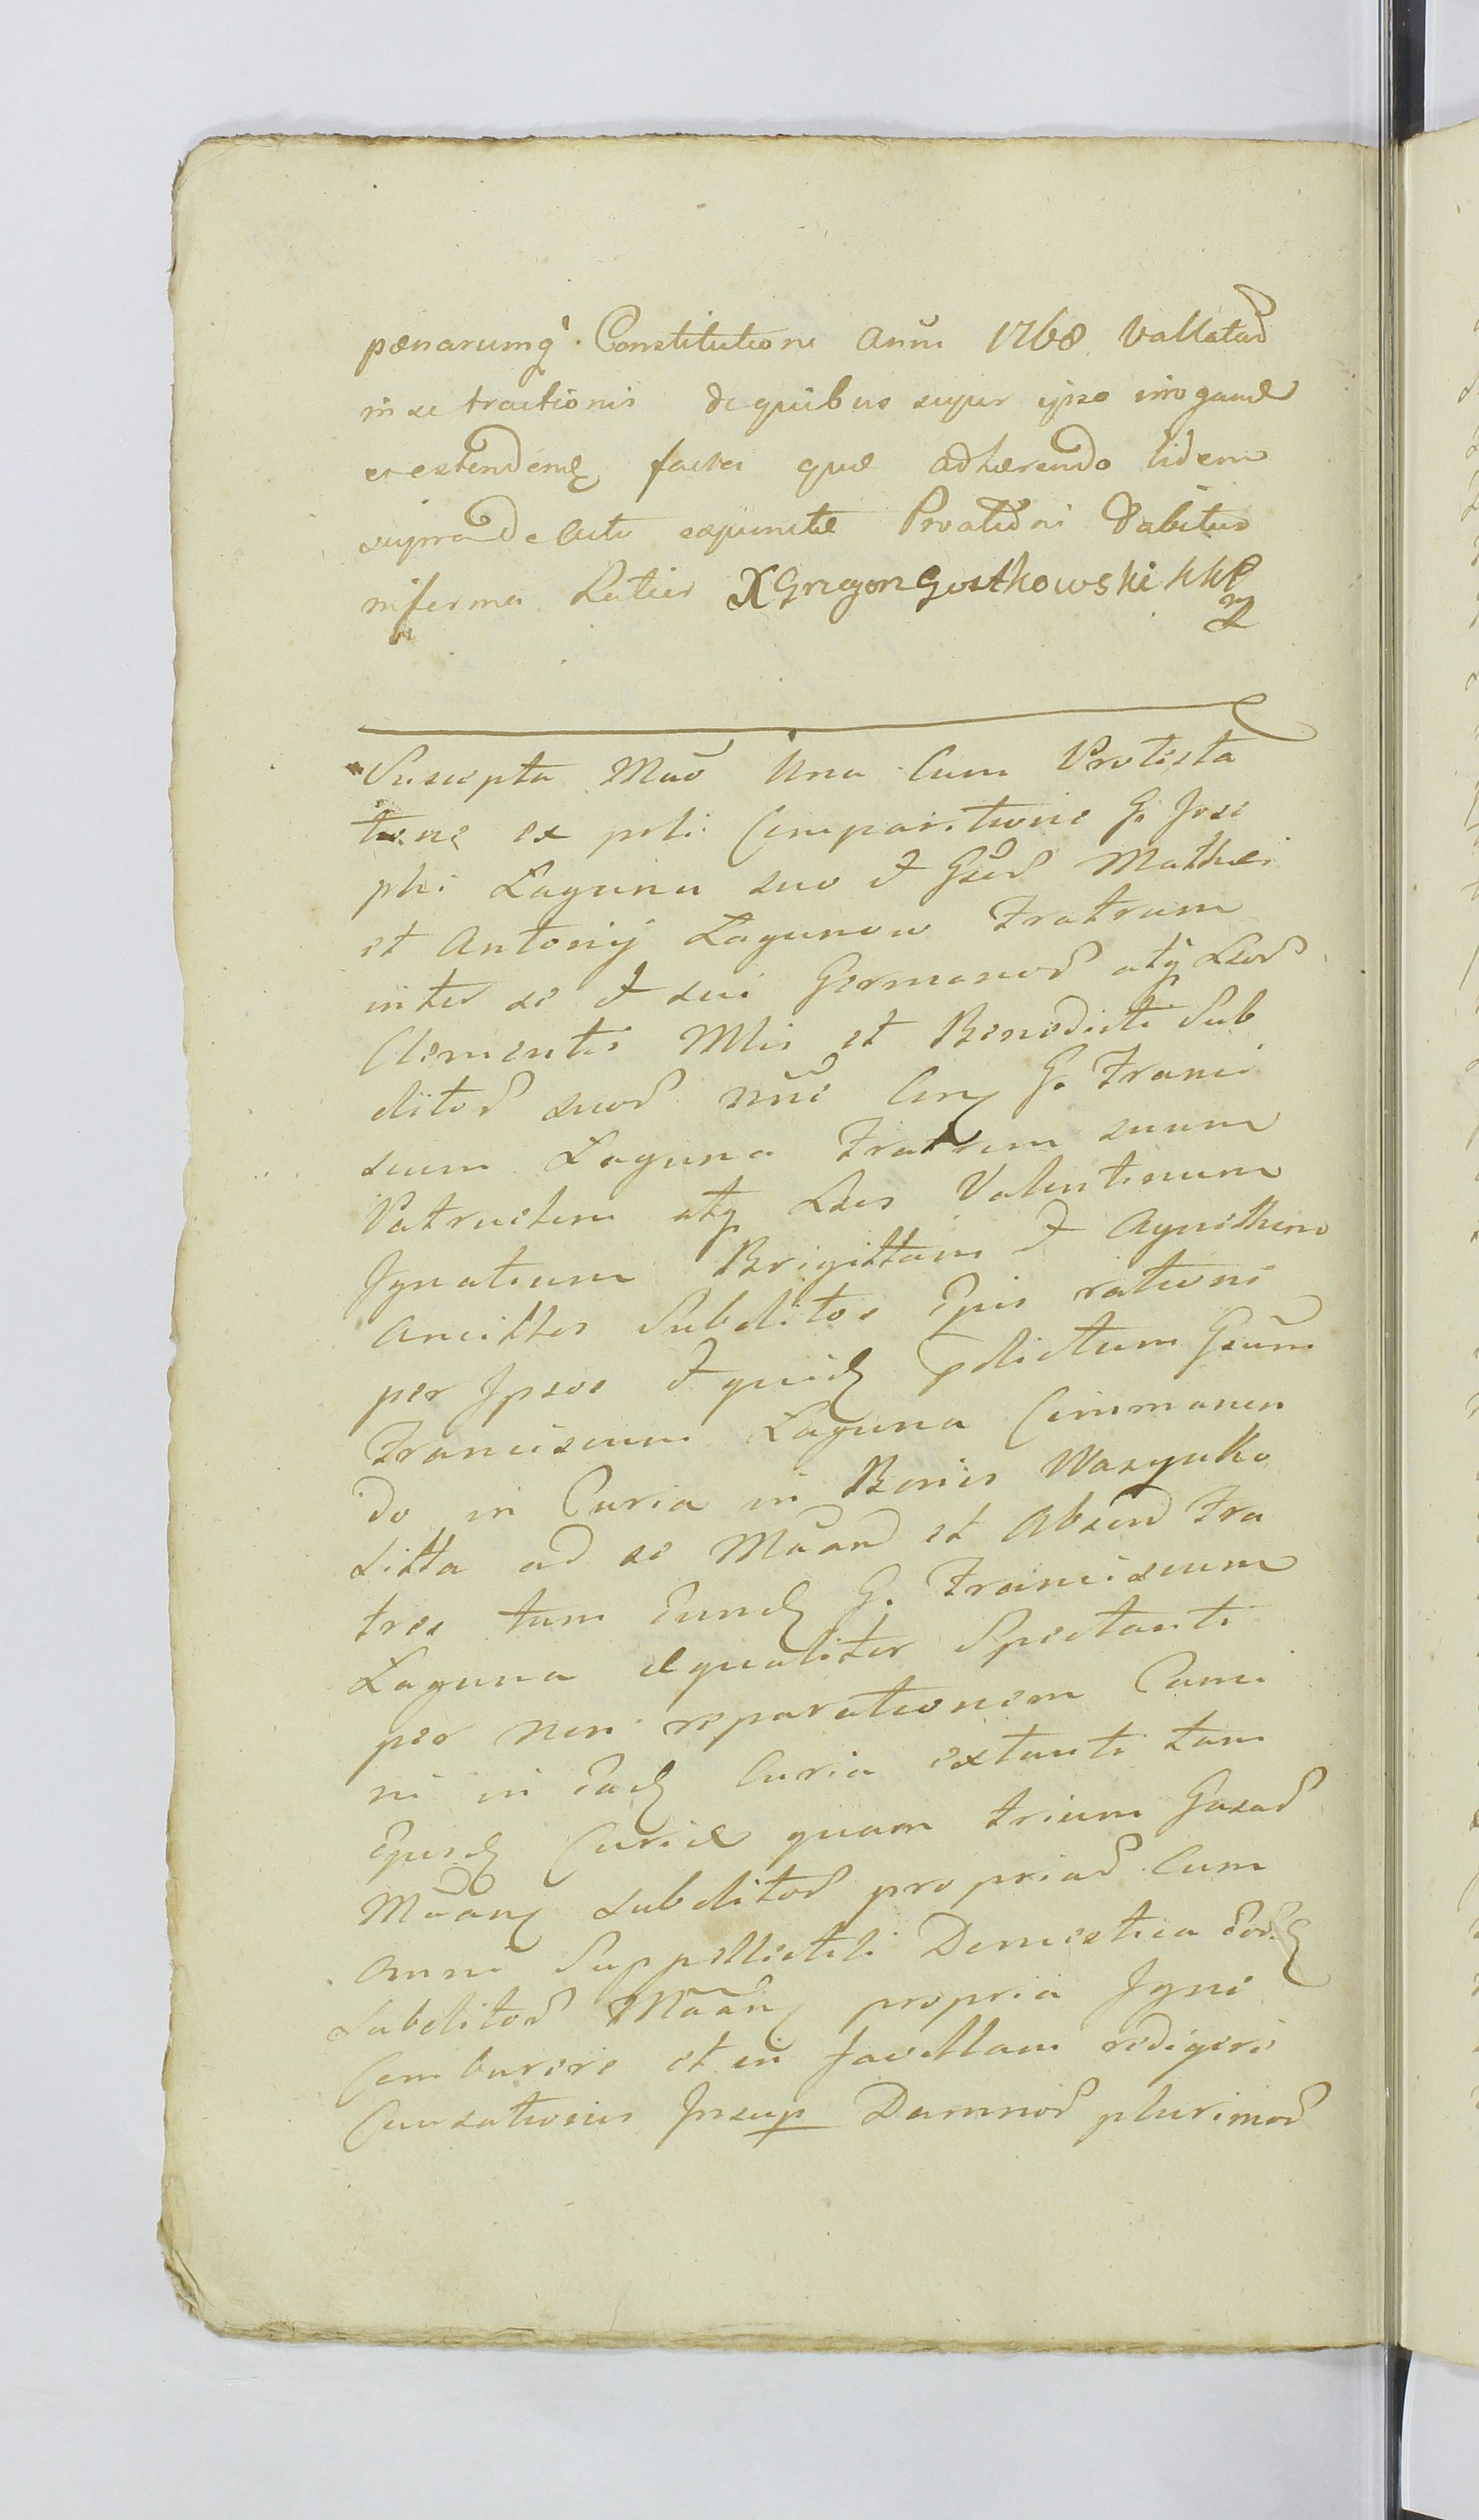 pœnarumq́ Constitutione anni 1768 Vallatar
in se tractionis de quibus super ipso irrogand
et extendend facta quæ adhærendo eidem
supra de actu expunctæ Protestioni dabitur
in forma Latior X Gregorz Gostkowski KKP
Suscepta Mão Una Cum Protesta
tione ex poti Comparitione G. Jose
phi Łaguna suo & Gsor Mathei
et Antonij Łagunow Fratrum
inter se & sui Germanor atq Lsor
Clementis Mlis et Benedicti Sub
ditor suor nñe Con G. Franci
scum Łaguna Fratrem suum
Patruelem atq Lses Valentinum
Ignatium Brigittam & Agnethem
Ancillas Subditos Ejus ratione
per Ipsos & quid pdictum Gsum
Franciscum Łaguna Commanen
do in Curia in Bonis Wazynko
sitta ad se Mãan et Absen Fra
tres tum Eund G. Franciscum
Łaguna æqualiter Spectanti
per non reparationem Cami
ni in Ead Curia extanti tam
Ejusd Curiæ quam trium Gasar
Mãan subditor propriar Cum
omni Suppellectili Domestica Eord
subditor Mãan propria Igne
Comburere et in favellam redigere
Causationis Insup Damnor plurimor